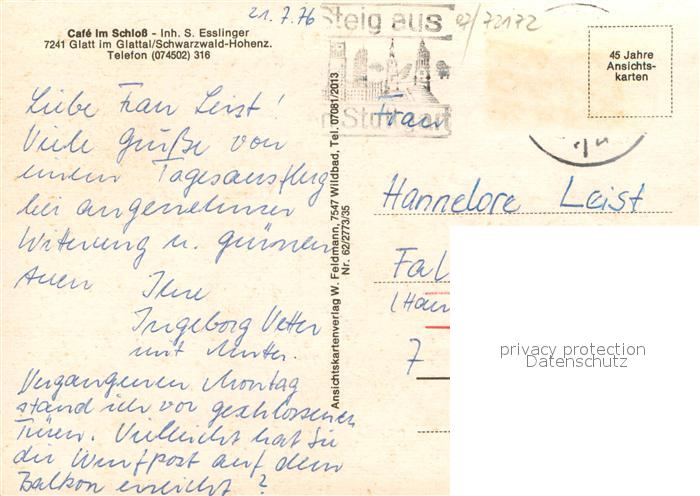 21.7.76
Café im Schloß - Inh. S. Esslinger
7241 Glatt im Glattal/Schwarzwald-Hohenz.
Telefon (074502) 316
Liebe Frau Leist!
Viele Grüße von
einem Tagesausflug
bei angenehmer
Witerung u. grünen
Auen
Ihre
Ingeborg Vetter
mit Mutter.
Vergangenen Montag
stand ich vor geschlossenen
Türen. Vielleicht hat Sie
die Wurfpost auf dem
Balkon erreicht?
Ansichtskartenverlag W. Feldmann, 7547 Wildbad, Tel. 07081/2013
Nr. 62/2773/35
Steig aus
in Stuttgart
02/72172
45 Jahre
Ansichts-
karten
Frau
Hannelore Leist
Fal
(Han
7
privacy protection
Datenschutz